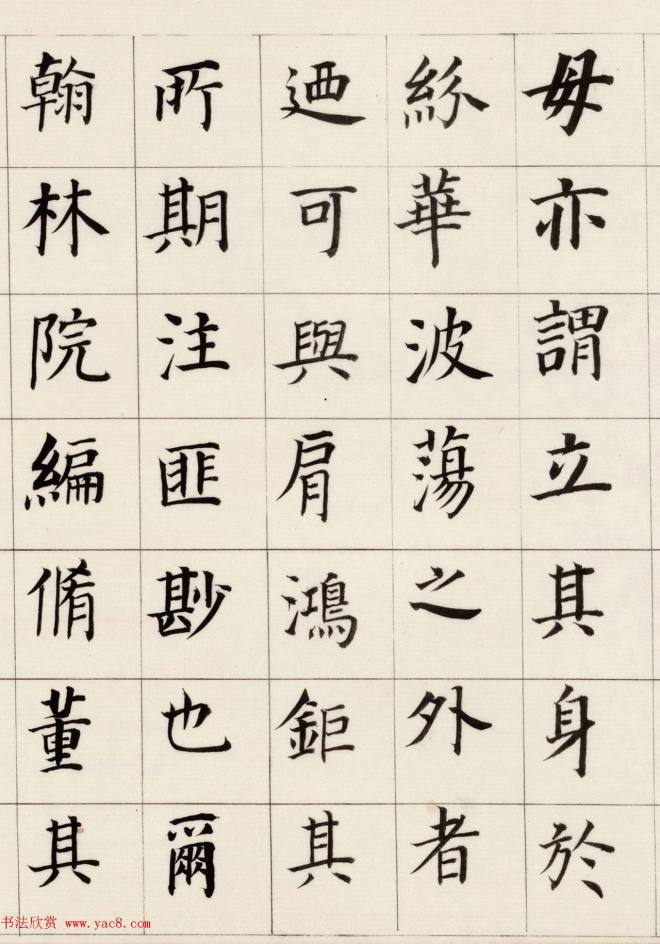 毋亦謂立其身於
紛華波蕩之外者
迺可與肩鴻鉅其
所期注匪尠也爾
翰林院編脩董其
书法欣赏 www.yac8.com